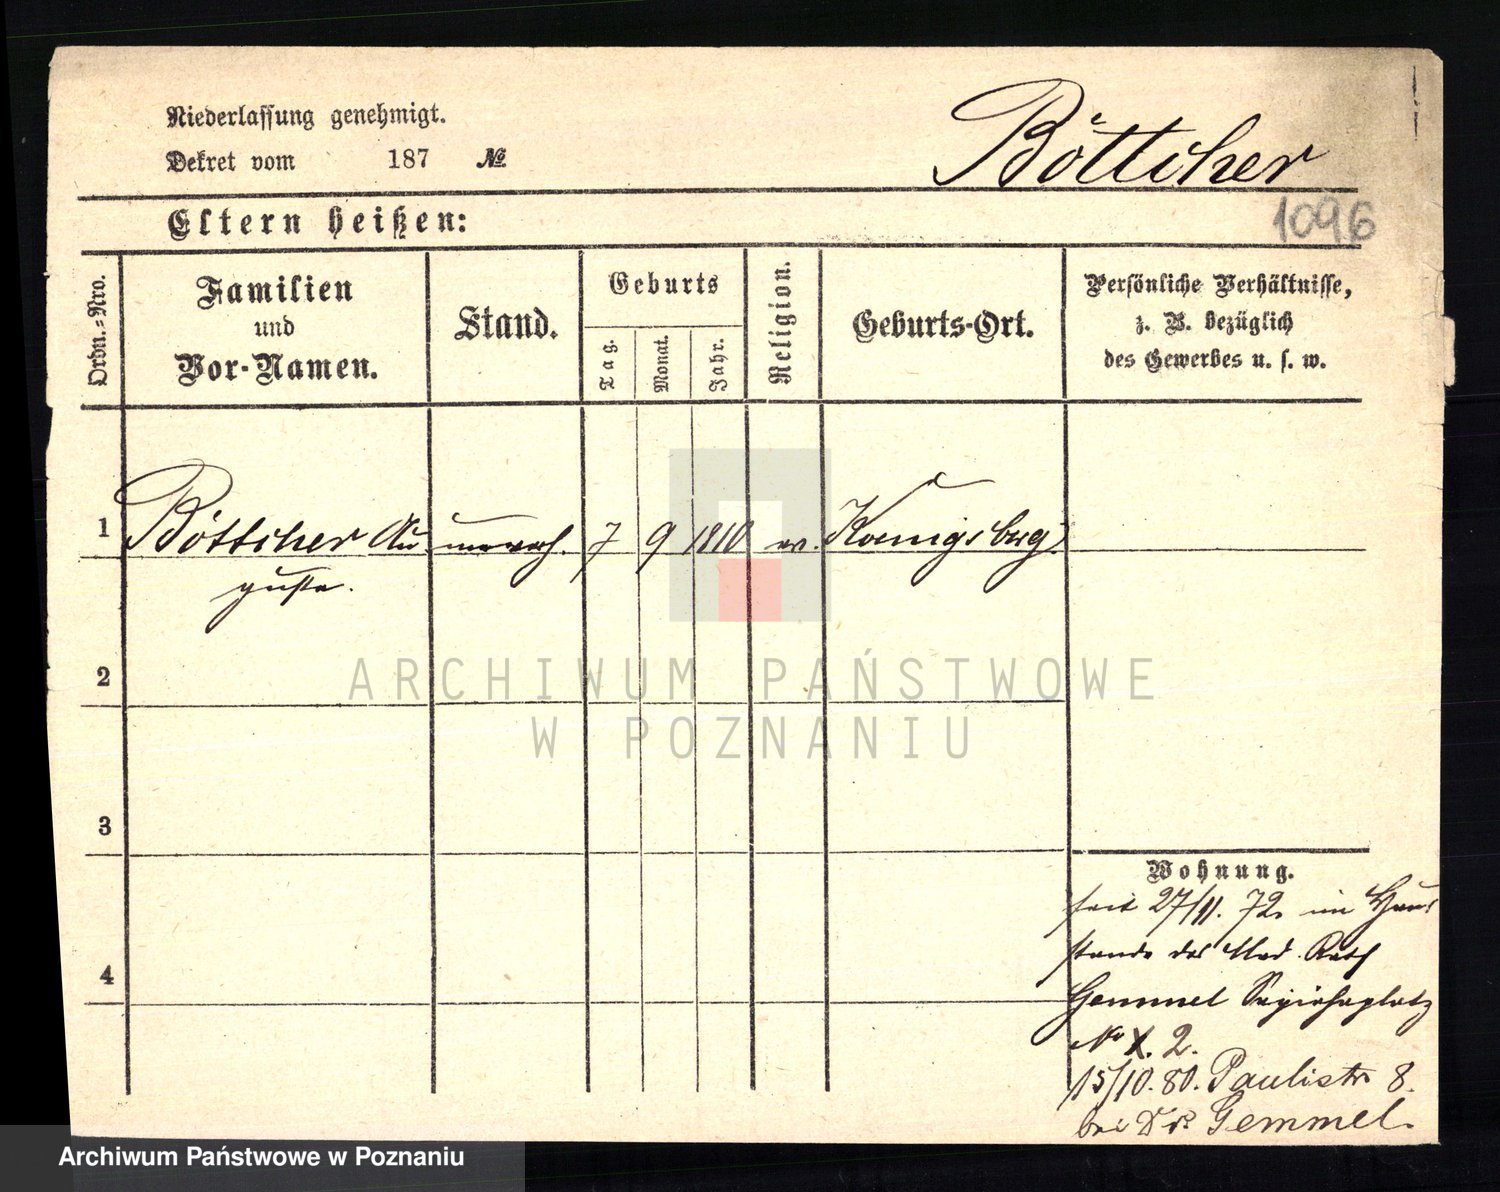 Niederlassung genehmigt.
Dekret vom 187 №
Böttcher
1096
Eltern heißen:
Ordn.=Nro.
Familien
und
Vor-Namen.
Stand.
Geburts
Tag.
Monat.
Jahr.
Religion.
Geburts-Ort.
Persönliche Verhältnisse,
z. B. bezüglich
des Gewerbes u. s. w.
1 Böttcher Au unverh. 7 9 1810 ev. Koenigsberg
guste.
2
ARCHIWUM PAŃSTWOWE
W POZNANIU
3
4
Wohnung.
seit 27/11. 72. im Haus
stande des Med. Rath
Gemmel
No 2.
15/10. 80. Paulistr 8.
bei Dr. Gemmel.
Archiwum Państwowe w Poznaniu